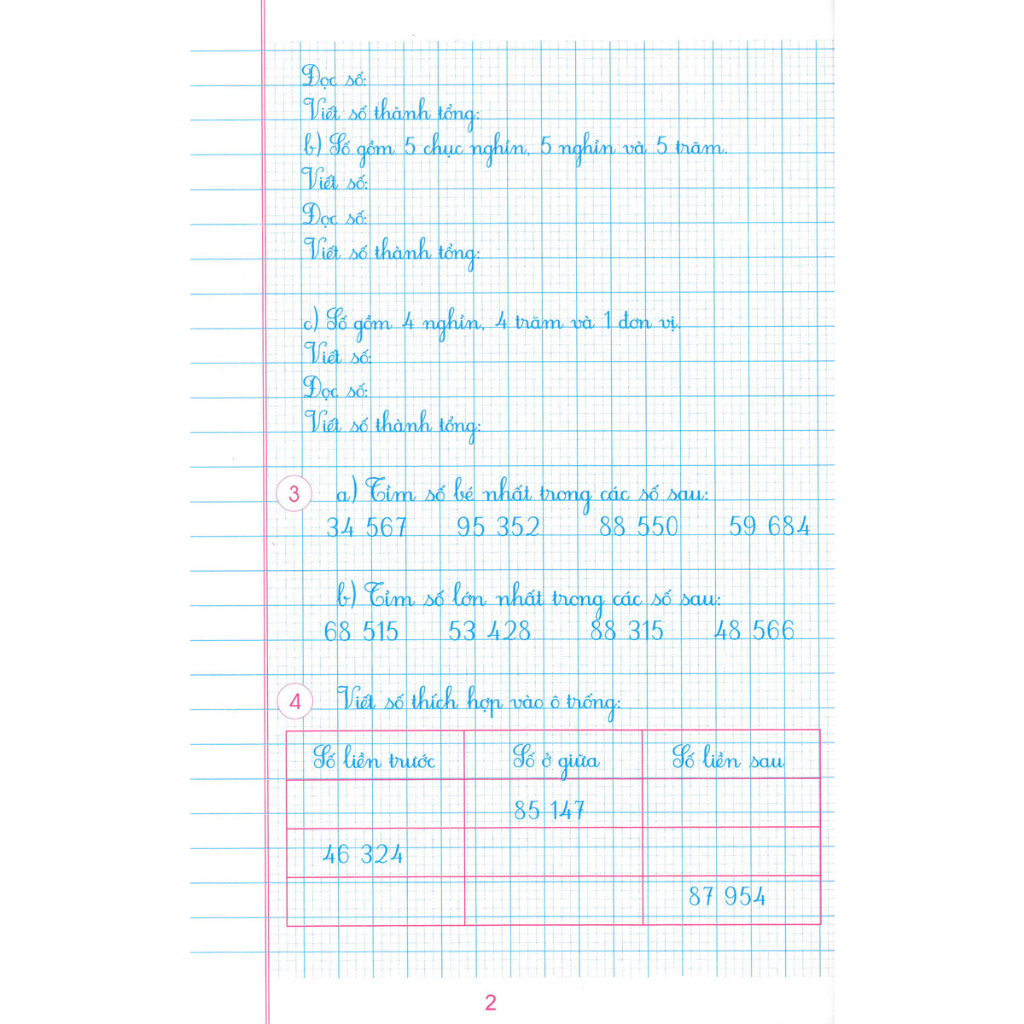 Đọc số:
Viết số thành tổng:
b) Số gồm 5 chục nghìn, 5 nghìn và 5 trăm.
Viết số:
Đọc số:
Viết số thành tổng:
c) Số gồm 4 nghìn, 4 trăm và 1 đơn vị.
Viết số:
Đọc số:
Viết số thành tổng:
3 a) Tìm số bé nhất trong các số sau:
34 567 95 352 88 550 59 684
b) Tìm số lớn nhất trong các số sau:
68 515 53 428 88 315 48 566
4 Viết số thích hợp vào ô trống:
Số liền trước Số ở giữa Số liền sau
85 147
46 324
87 954
2